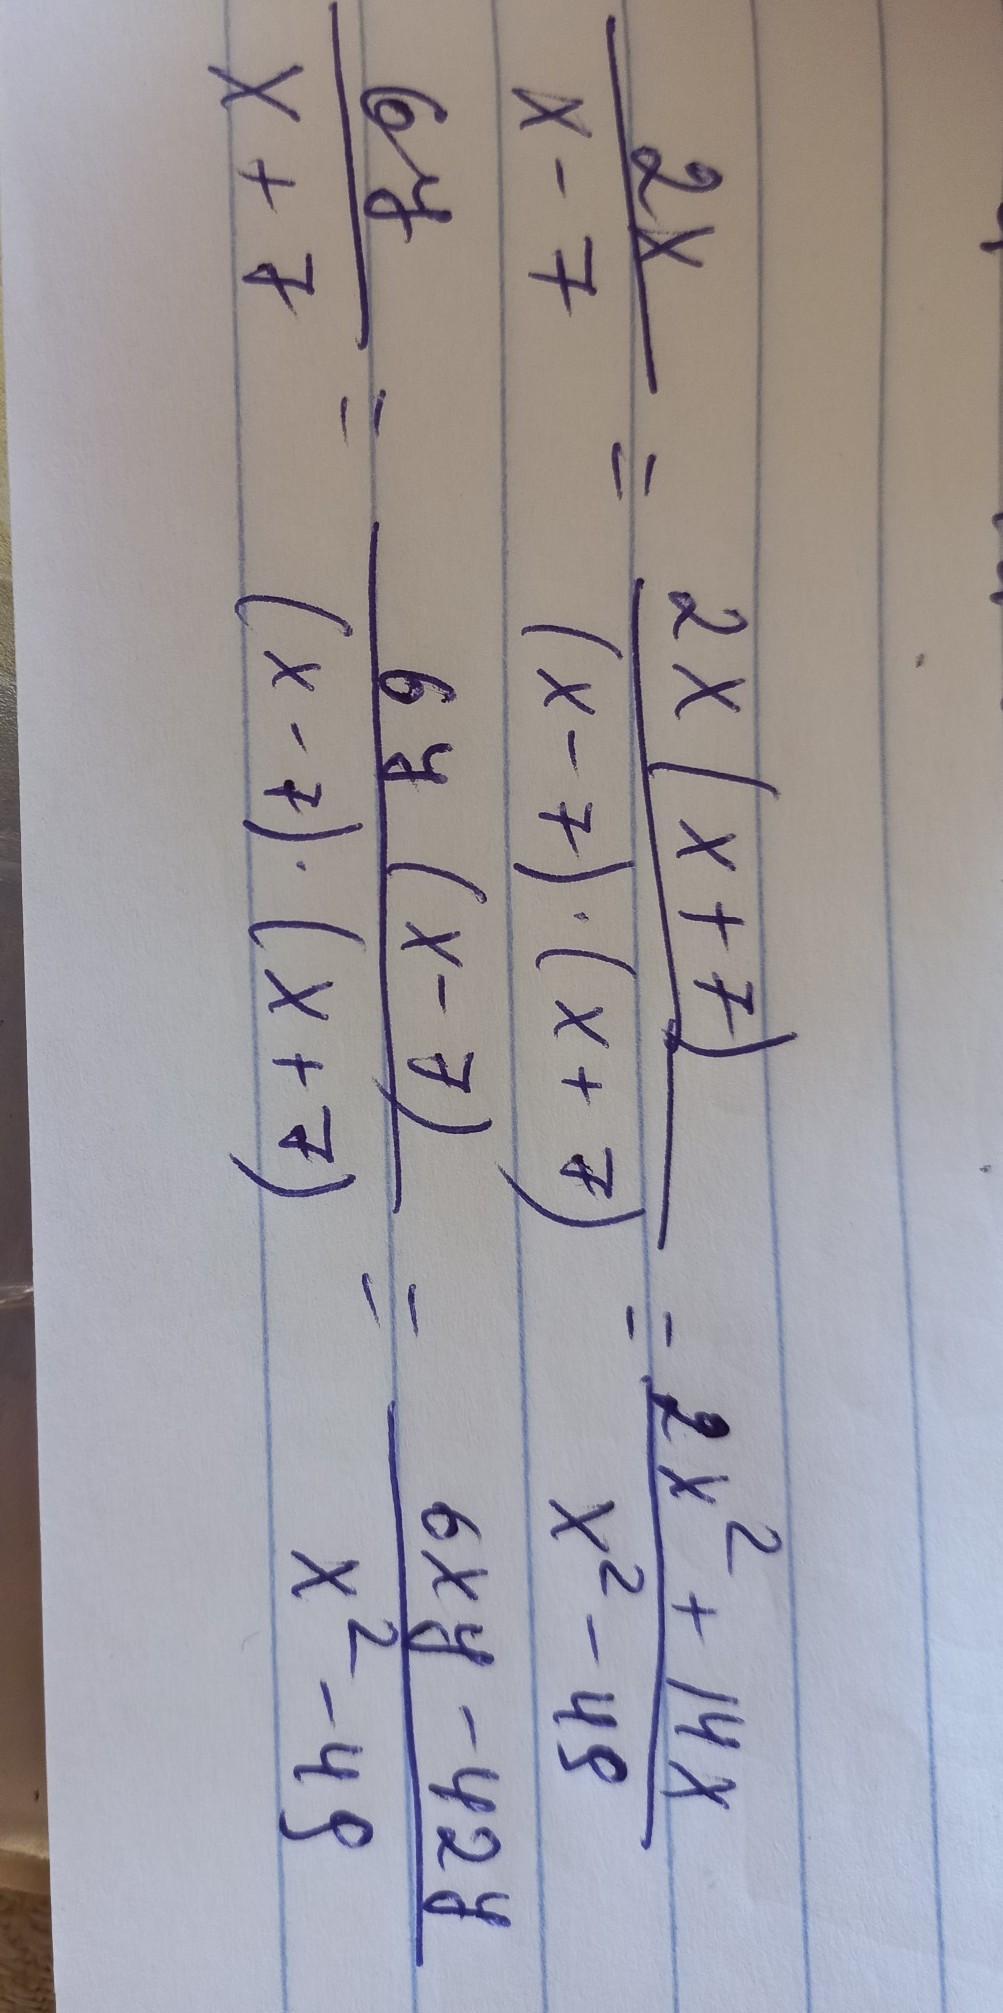 2x / x - 7 = 2x(x + 7) / (x - 7) · (x + 7) = 2x² + 14x / x² - 49
6y / x + 7 = 6y(x - 7) / (x - 7) · (x + 7) = 6xy - 42y / x² - 49